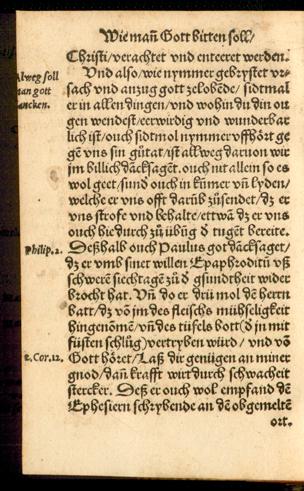 Wie mañ Gott bitten soll/
Christi/verachtet vnd enteeret werden.
Vnd also/wie nymmer gebrystet vr⸗
Alweg soll
man gott
dancken.
sach vnd anzug gott zelobēde/ sidtmal
er in allen dingen/ vnd wohin du din ou
gen wendest/eerwirdig vnd wunderbar
lich ist/ouch sidtmol nymmer vffhört ge
gē vns sin gůtat/ist allweg daruon wir
jm billich dācksaget. ouch nit allem so es
wol geet/sund̄ ouch in kūmer vñ lyden/
welche er vns offt darūb zůsendet/ dz er
vns strofe vnd behalte/ettwā dz er vns
ouch hie durch zů übūg d̄ tugēt bereite.
Philip.2.
Deßhalb ouch Paulus got dācksaget/
dz er vmb sinet willen Epaphroditū vß
schwerē siechtagē zů d̄ gsundtheit wider
brocht hat. Vñ do er drü mol dē herrn
batt/ dz vō jm des fleischs můhseligkeit
hingenōmē/vñ des tüfels bott (d̄ jn mit
füsten schlůg) vertryben würd/ vnd vō
2.Cor.12.
Gott hōret/Laß dir genůgen an miner
gnod/ dañ krafft wirt durch schwacheit
stercker. Deß er ouch wol empfand dē
Ephesiern schrybende an dē obgemeltē
ort.